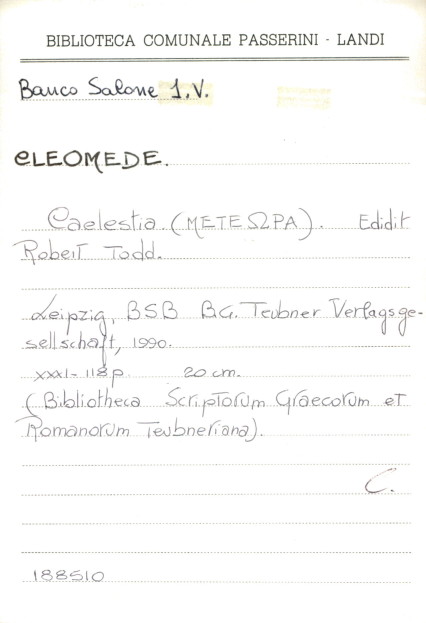 BIBLIOTECA COMUNALE PASSERINI - LANDI
Banco Salone 1.V.
CLEOMEDE.
Caelestia (ΜΕΤΕΩΡΑ). Edidit
Robert Todd.
Leipzig, BSB B.G. Teubner Verlagsge-
sellschaft, 1990.
XXXI-118 p. 20 cm.
(Bibliotheca Scriptorum Graecorum et
Romanorum Teubneriana).
C.
188510